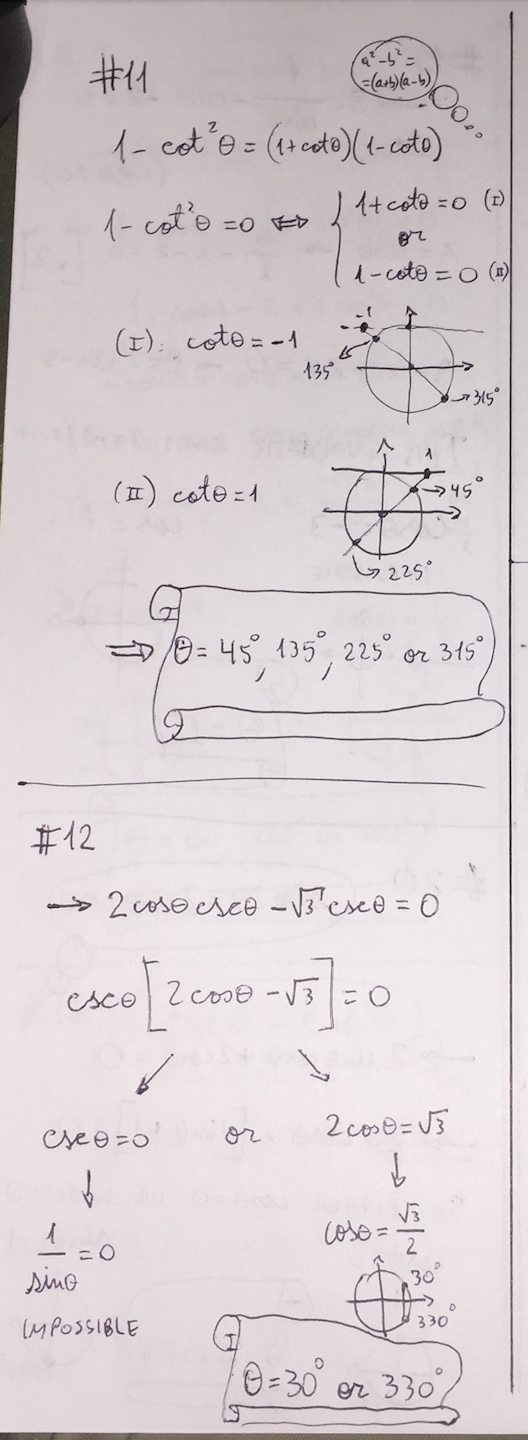 #11
a² - b² =
= (a+b)(a-b)
1 - cot²θ = (1+cotθ)(1-cotθ)
1 - cot²θ = 0 ⇔ { 1+cotθ = 0 (I)
or
1-cotθ = 0 (II)
(I): cotθ = -1
-1
135°
315°
(II) cotθ = 1
1
45°
225°
⇒ θ = 45°, 135°, 225° or 315°
#12
→ 2cosθ cscθ - √3 cscθ = 0
cscθ [2cosθ - √3] = 0
cscθ = 0 or 2cosθ = √3
1/sinθ = 0
cosθ = √3/2
IMPOSSIBLE
30°
330°
θ = 30° or 330°